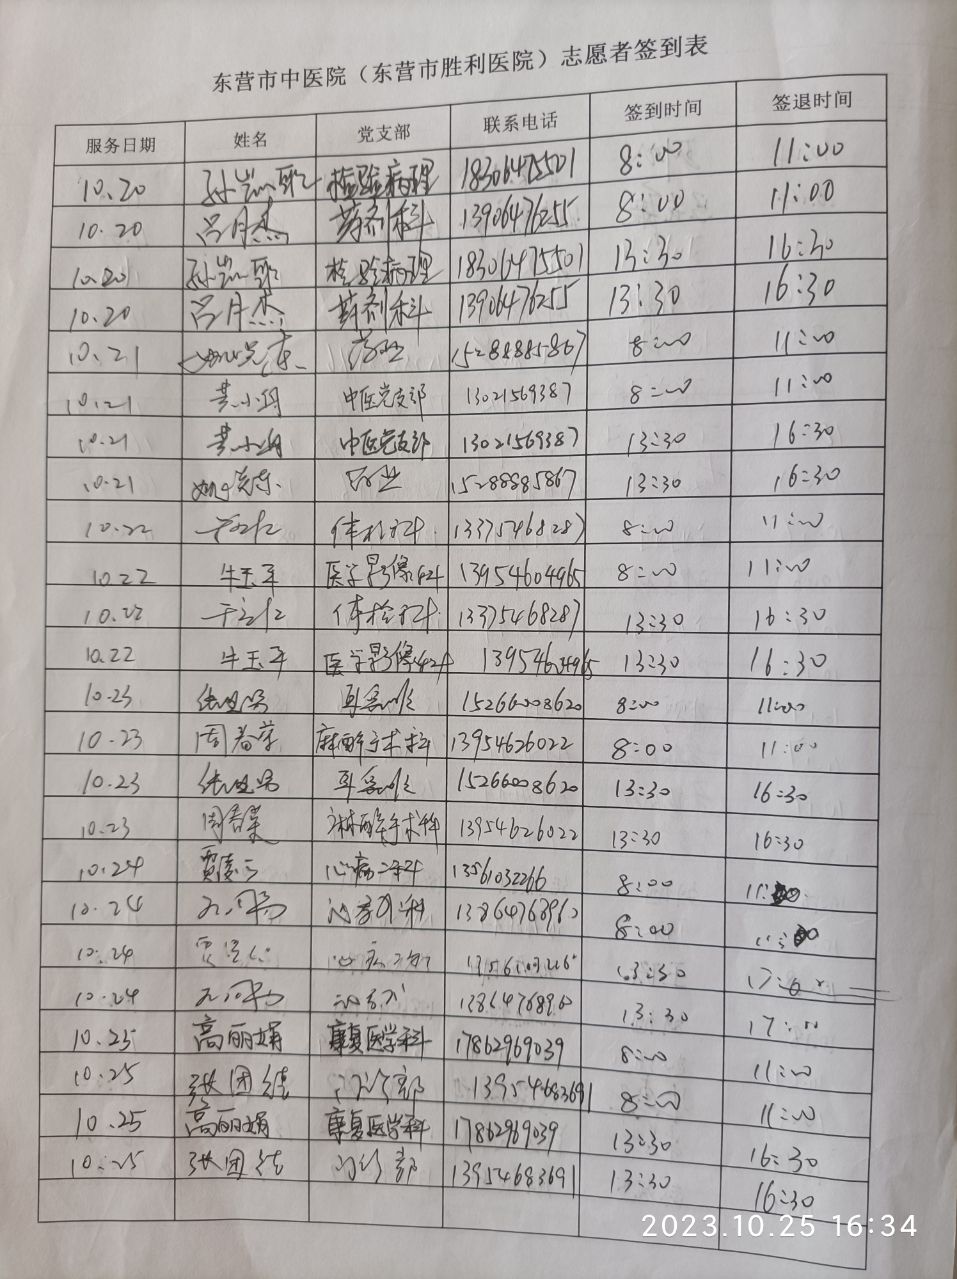 东营市中医院（东营市胜利医院）志愿者签到表
服务日期 姓名 党支部 联系电话 签到时间 签退时间
10.20 孙凯歌 检验病理 18306475501 8:00 11:00
10.20 吕月杰 药剂科 13906476255 8:00 11:00
10.20 孙凯歌 检验病理 18306475501 13:30 16:30
10.20 吕月杰 药剂科 13906476255 13:30 16:30
10.21 15288885867 8:00 11:00
10.21 黄小娟 中医党支部 13021569387 8:00 11:00
10.21 黄小娟 中医党支部 13021569387 13:30 16:30
10.21 15288885867 13:30 16:30
10.22 体检科 13375468287 8:00 11:00
10.22 牛玉平 医学影像科 13954604965 8:00 11:00
10.22 体检科 13375468287 13:30 16:30
10.22 牛玉平 医学影像科 13954604965 13:30 16:30
10.23 耳鼻喉 15266008620 8:00 11:00
10.23 周春荣 麻醉手术科 13954626022 8:00 11:00
10.23 耳鼻喉 15266008620 13:30 16:30
10.23 周春荣 麻醉手术科 13954626022 13:30 16:30
10.24 心病二科 13561032266 8:00 11:
10.24 泌尿外科 13864768960 8:00 11:
10.24 心病二科 13:30 17:
10.24 泌尿外 13864768960 13:30 17:00
10.25 高丽娟 康复医学科 17862969039 8:00 11:00
10.25 张团结 门诊部 13954683691 8:00 11:00
10.25 高丽娟 康复医学科 17862969039 13:30 16:30
10.25 张团结 门诊部 13954683691 13:30 16:30
2023.10.25 16:34